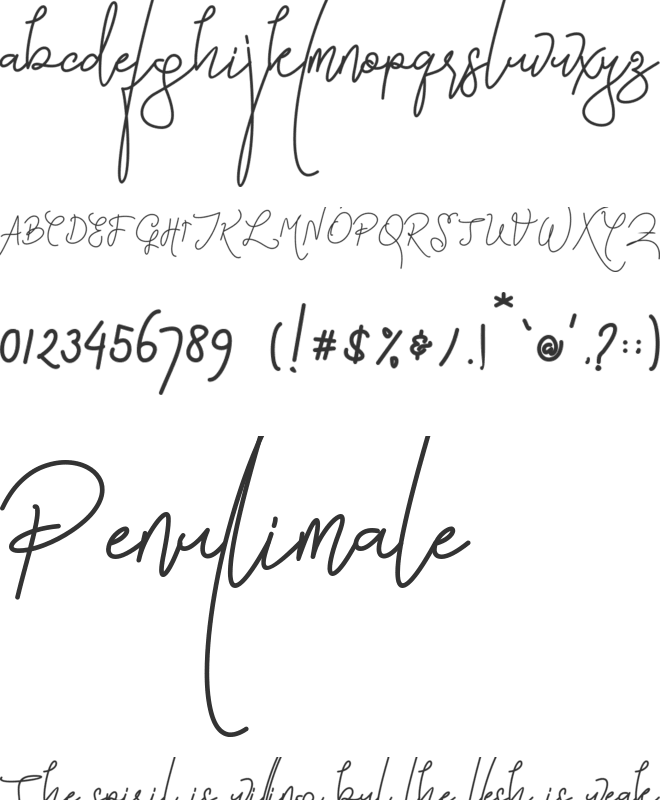 abcdefghijklmnopqrstuvwxyz
ABCDEFGHIJKLMNOPQRSTUVWXYZ
0123456789 (!#$%&/.|*`@',?::)
Penultimate
The spirit is willing but the flesh is weak